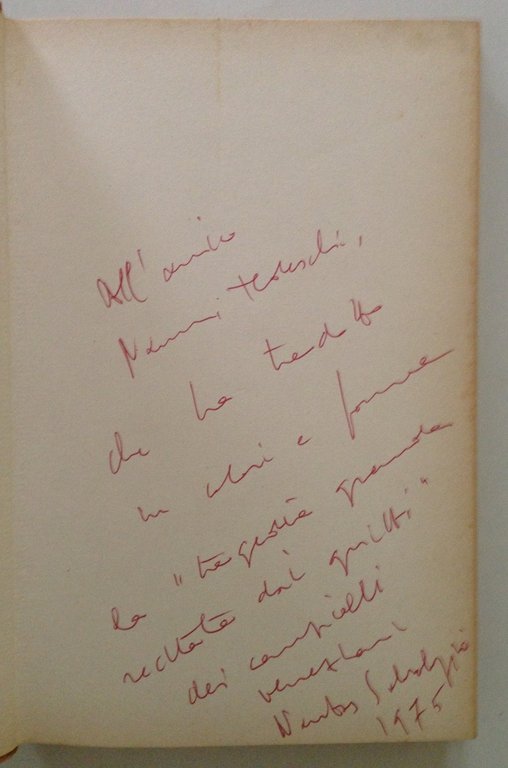 All'amico
Nanni Tedeschi,
che ha tradotto
in colori e forme
la "tragedia
recitata dai guitti"
dei campielli
veneziani
Nantas Salvalaggio
1975